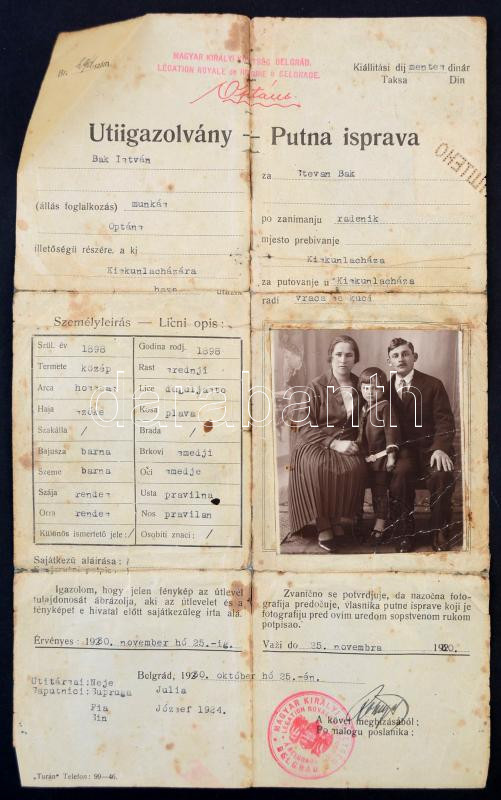 MAGYAR KIRÁLYI KÖVETSÉG BELGRÁD.
LÉGATION ROYALE de HONGRIE à BELGRADE.
Optáns.
Kiállítási díj mentes dinár
Taksa Din
Utiigazolvány – Putna isprava
Bak István
za Stevan Bak
(állás foglalkozás) munkás
po zanimanju radenik
Optáns
mjesto prebivanje
illetőségű részére, a ki
Kiskunlacháza
Kiskunlacházára
za putovanje u Kiskunlacháza
haza utazik
radi vraca se kuci
Személyleirás — Lični opis:
Szül. év 1898 Godina rodj. 1898
Termete közép Rast srednji
Arca hosszas Lice duguljasto
Haja szőke Kosa plava
Szakálla / Brada /
Bajusza barna Brkovi smedji
Szeme barna Oči smedje
Szája rendes Usta pravilna
Orra rendes Nos pravilan
Különös ismertető jele: / Osobiti znaci: /
Sajátkezű aláírása:
darabanth
Igazolom, hogy jelen fénykép az útlevél
tulajdonosát ábrázolja, aki az útlevelet és a
fényképet e hivatal előtt sajátkezűleg írta alá.
Zvanično se potvrdjuje, da nazočna foto-
grafija predočuje, vlasnika putne isprave koji je
fotografiju pred ovim uredom sopstvenom rukom
potpisao.
Érvényes: 1930. november hó 25.-ig.
Važi do 25. novembra 1930.
Belgrád, 1930. október hó 25.-án.
Utitársai: Neje Julia
Saputnici: Supruga
Fia József 1924.
Sin
MAGYAR KIRÁLYI
LÉGATION ROYALE
BELGRÁD
A követ megbízásából:
Po nalogu poslanika:
„Turán" Telefon: 99—46.